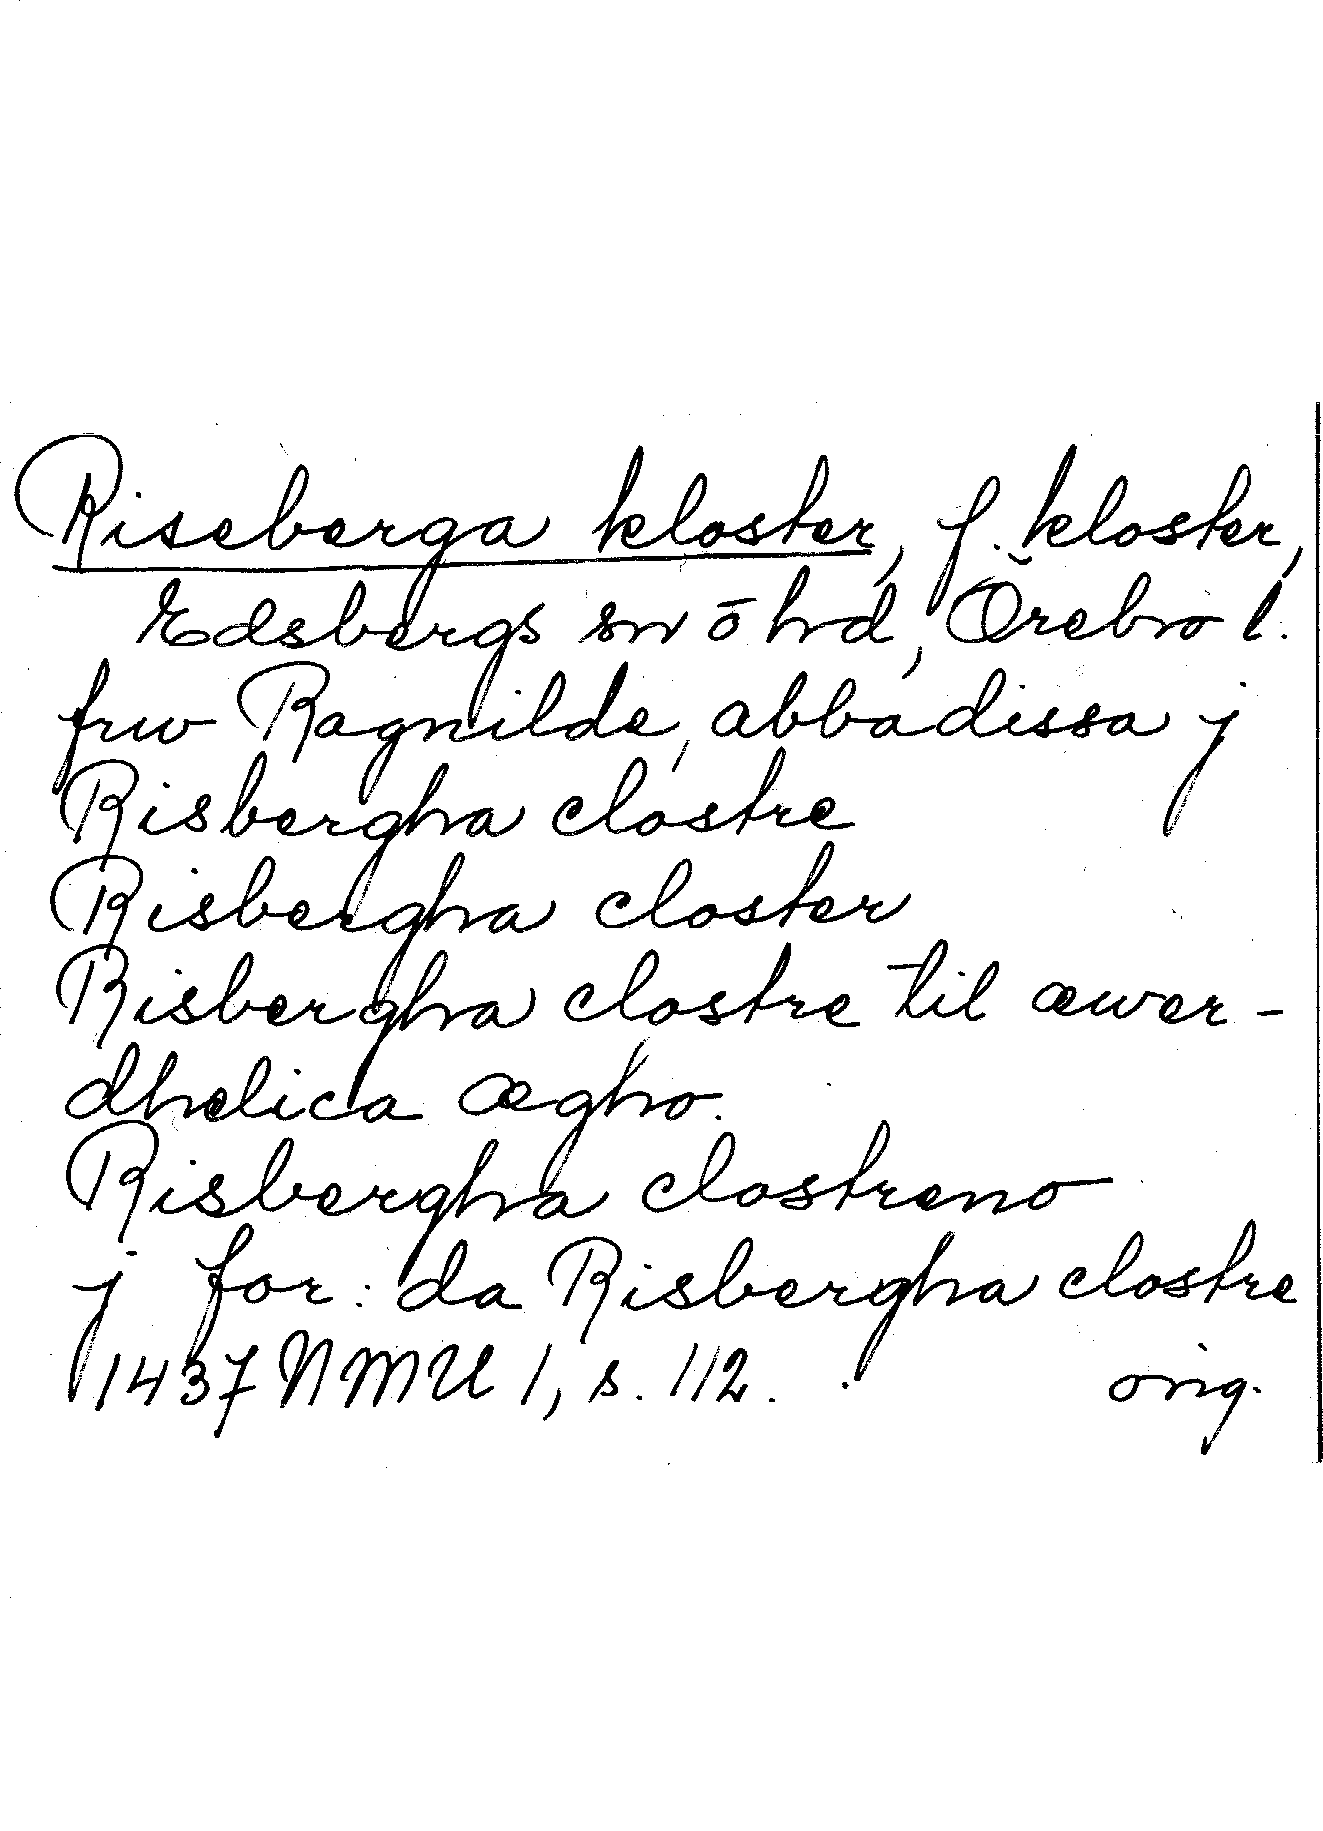 Riseberga kloster, f. kloster,
Edsbergs sn o hd, Örebro l.
frw Ragnilde, abbadissa j
Risbergha clostre
Risbergha closter
Risbergha clostre til æwer-
dhelica ægho.
Risbergha clostreno
j for: da Risbergha clostre
1437 NMU 1, s. 112. orig.